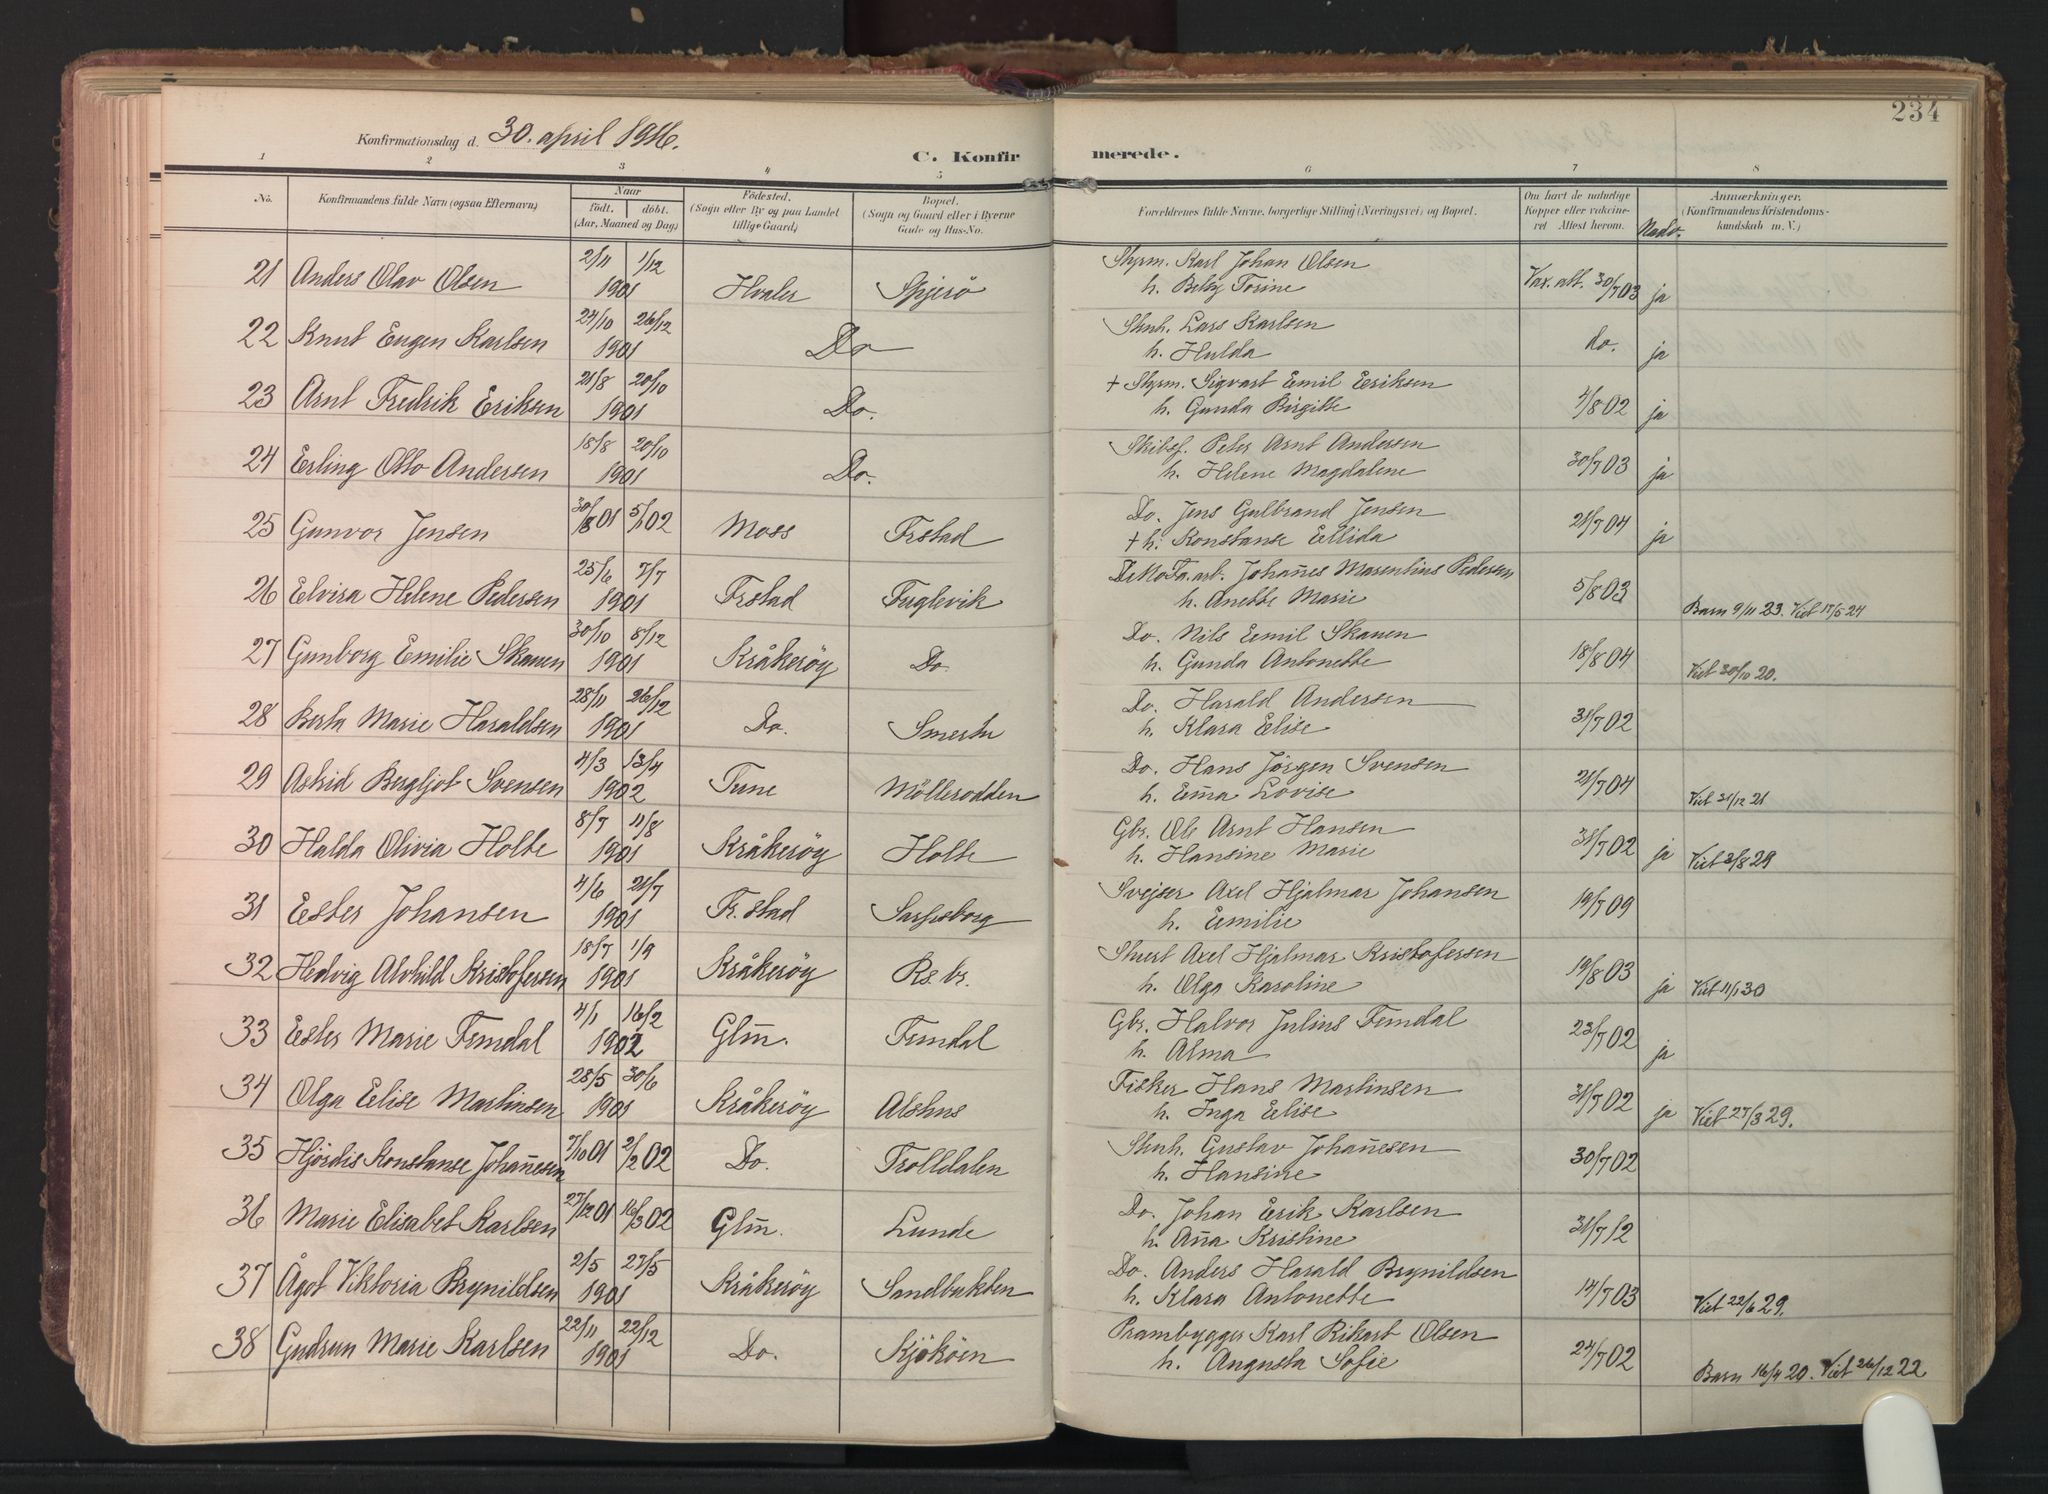 234
Konfirmationsdag d. 30. april 1916.
C. Konfirmerede.
1 2 3 4 5 6 7 8
No. Konfirmandens fulde Navn (ogsaa Efternavn) Naar født. døbt. (Aar, Maaned og Dag) Fødested. (Sogn eller By og paa Landet tillige Gaard) Bopæl. (Sogn og Gaard eller i Byerne Gade og Hus-No. Forældrenes fulde Navne, borgerlige Stilling (Næringsvei) og Bopæl. Om havt de naturlige Kopper eller vakcineret Attest herom. Nadv. Anmærkninger. (Konfirmandens Kristendomskundskab m. V.)
21 Anders Olav Olsen 2/11 1/12 1901 Hvaler Spjærø Styrm. Karl Johan Olsen Vax.att. 30/7 03 ja
h. Betsy Torine
22 Knut Eugen Karlsen 24/10 26/12 1901 Do Stnh. Lars Karlsen do. ja
h. Hulda
23 Arnt Fredrik Eriksen 21/8 20/10 1901 Do. + Styrm. Sigvart Emil Eriksen 4/8 02 ja
h. Gunda Birgitte
24 Erling Otto Andersen 18/8 20/10 1901 Do. Skibsf. Peter Arnt Andersen 30/7 03 ja
h. Helene Magdalene
25 Gunvor Jensen 30/8 01 5/1 02 Moss Frstad Do. Jens Gulbrand Jensen 21/7 04 ja
+ h. Konstanse Ellida
26 Elvira Helene Pedersen 25/6 7/7 1901 Frstad Fuglevik DeNoFa.arb. Johan̄es Marentius Pedersen 5/8 03 Barn 9/11 23. Viet 17/5 24
h. Anette Marie
27 Gunborg Emilie Skauen 30/10 8/12 1901 Kråkerøy Do. Do. Nils Emil Skauen 18/8 04 Viet 30/10 20.
h. Gunda Antonette
28 Berta Marie Haraldsen 28/11 26/12 1901 Do. Smertu Do. Harald Andersen 31/7 02
h. Klara Elise
29 Astrid Bergljot Svensen 4/3 13/4 1902 Tune Möllerodden Do. Hans Jörgen Svensen 21/7 04 Viet 31/12 21
h. Em̄a Lovise
30 Halda Olivia Holte 8/7 11/8 1901 Kråkerøy Holte Gbr. Ole Arnt Hansen 31/7 02 ja Viet 3/8 29
h. Hansine Marie
31 Ester Johansen 4/6 21/7 1901 Fr.stad Sarpsborg Svejser Axel Hjalmar Johansen 19/7 09
h. Emilie
32 Hedvig Alvhild Kristofersen 18/7 1/9 1901 Kråkerøy Rs.br. Stuert Axel Hjalmar Kristofersen 19/8 03 ja Viet 11/1 30
h. Olga Karoline
33 Ester Marie Femdal 4/1 16/2 1902 Glm̄. Femdal Gbr. Halvor Julius Femdal 23/7 02 ja
h. Alma
34 Olga Elise Martinsen 28/5 30/6 1901 Kråkerøy Alshus Fisker Hans Martinsen 31/7 02 ja Viet 27/3 29.
h. Inga Elise
35 Hjördis Konstanse Johan̄esen 7/10 01 2/2 02 Do. Trolldalen Stnh. Gustav Johan̄esen 30/7 02
h. Hansine
36 Marie Elisabet Karlsen 27/12 01 16/3 02 Glm̄. Lunde Do. Johan Erik Karlsen 31/7 12
h. An̄a Kristine
37 Ågot Viktoria Brynildsen 2/5 27/5 1901 Kråkerøy Sandbukten Do. Anders Harald Brynildsen 14/7 03 Viet 22/6 29.
h. Klara Antonette
38 Gudrun Marie Karlsen 22/11 22/12 1901 Do. Kjököen Prambygger Karl Rikart Olsen 24/7 02 Barn 16/4 20. Viet 26/12 22
h. Augusta Sofie